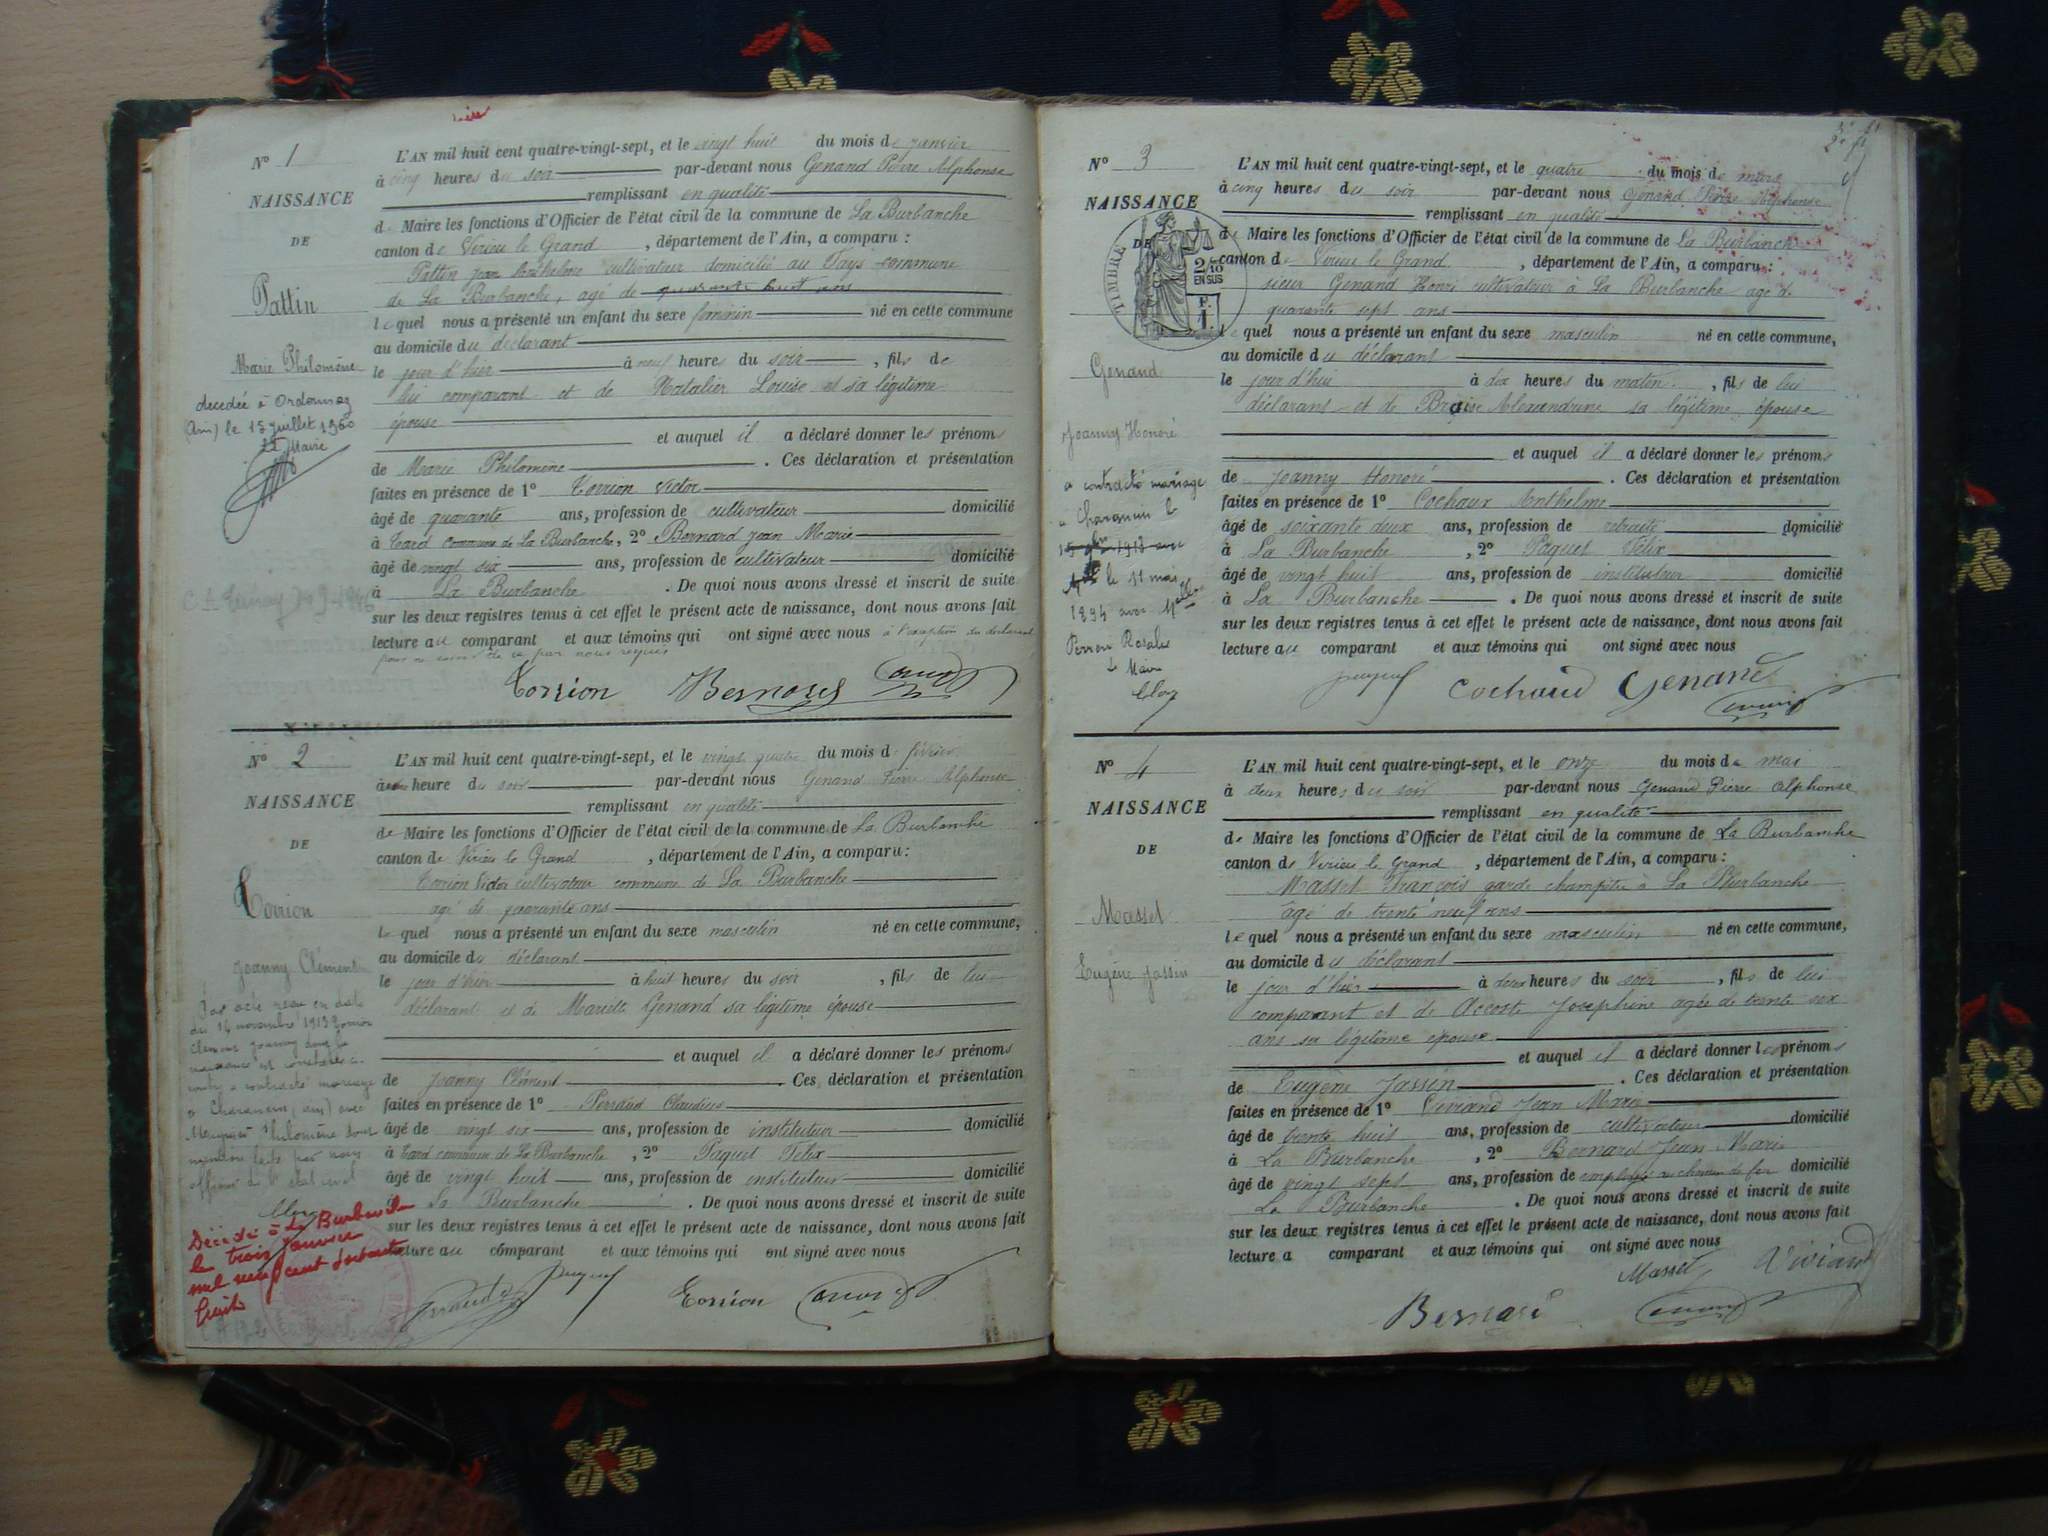 N° 1
NAISSANCE
DE
Pattin
Marie Philomène
décédée à Ordonnaz
(Ain) le 15 juillet 1960
Le Maire
L'AN mil huit cent quatre-vingt-sept, et le vingt huit du mois de janvier
à cinq heures du soir par-devant nous Genand Pierre Alphonse
remplissant en qualité
de Maire les fonctions d'Officier de l'état civil de la commune de La Burbanche
canton de Virieu le Grand, département de l'Ain, a comparu :
Pattin Jean Anthelme cultivateur domicilié au Pays commune
de La Burbanche, agé de quarante huit ans
lequel nous a présenté un enfant du sexe féminin né en cette commune
au domicile du déclarant
le jour d'hier à neuf heures du soir, fils de
lui comparant et de Natalier Louise et sa légitime
épouse
et auquel il a déclaré donner les prénoms
de Marie Philomène. Ces déclaration et présentation
faites en présence de 1° Torrion Victor
âgé de quarante ans, profession de cultivateur domicilié
à Tard commune de La Burbanche, 2° Bernard Jean Marie
âgé de vingt six ans, profession de cultivateur domicilié
à La Burbanche. De quoi nous avons dressé et inscrit de suite
sur les deux registres tenus à cet effet le présent acte de naissance, dont nous avons fait
lecture au comparant et aux témoins qui ont signé avec nous à l'exception du déclarant
pour ce de ce par nous requis
Torrion Bernard
N° 2
NAISSANCE
DE
Torrion
Joanny Clément
Par acte reçu en date
du 14 novembre 1913 Torrion
Clément Joanny dont la
naissance est constatée ci-
contre a contracté mariage
à Charancin (Ain) avec
Philomène dont
mention faite par nous
officier de l'état civil
Décédé à La Burbanche
le trois janvier
mil neuf cent soixante
huit
L'AN mil huit cent quatre-vingt-sept, et le vingt quatre du mois de février
à heure du soir par-devant nous Genand Pierre Alphonse
remplissant en qualité
de Maire les fonctions d'Officier de l'état civil de la commune de La Burbanche
canton de Virieu le Grand, département de l'Ain, a comparu :
Torrion Victor cultivateur commune de La Burbanche
agé de quarante ans
lequel nous a présenté un enfant du sexe masculin né en cette commune,
au domicile du déclarant
le jour d'hier à huit heures du soir, fils de lui
déclarant et de Mariette Genand sa légitime épouse
et auquel il a déclaré donner les prénoms
de Joanny Clément. Ces déclaration et présentation
faites en présence de 1° Perraud Claudius
âgé de vingt six ans, profession de instituteur domicilié
à Tard commune de La Burbanche, 2° Paquet Félix
âgé de vingt huit ans, profession de instituteur domicilié
à La Burbanche. De quoi nous avons dressé et inscrit de suite
sur les deux registres tenus à cet effet le présent acte de naissance, dont nous avons fait
lecture au comparant et aux témoins qui ont signé avec nous
Torrion
N° 3
NAISSANCE
DE
TIMBRE
2/10
EN SUS
Genand
Joanny Honoré
a contracté mariage
à Charancin le
15 1913 avec
le 11 mai
1894 avec Melle
Perrin Rosalie
Le Maire
L'AN mil huit cent quatre-vingt-sept, et le quatre du mois de mars
à cinq heures du soir par-devant nous Genand Pierre Alphonse
remplissant en qualité
de Maire les fonctions d'Officier de l'état civil de la commune de La Burbanche
canton de Virieu le Grand, département de l'Ain, a comparu :
sieur Genand Henri cultivateur à La Burbanche agé de
quarante sept ans
lequel nous a présenté un enfant du sexe masculin né en cette commune,
au domicile du déclarant
le jour d'hui à dix heures du matin, fils de lui
déclarant et de Alexandrine sa légitime épouse
et auquel il a déclaré donner les prénoms
de Joanny Honoré. Ces déclaration et présentation
faites en présence de 1° Cochaux Anthelme
âgé de soixante deux ans, profession de retraité domicilié
à La Burbanche, 2° Paquet Félix
âgé de vingt huit ans, profession de instituteur domicilié
à La Burbanche. De quoi nous avons dressé et inscrit de suite
sur les deux registres tenus à cet effet le présent acte de naissance, dont nous avons fait
lecture au comparant et aux témoins qui ont signé avec nous
Cochaud Genand
N° 4
NAISSANCE
DE
Massel
Eugène Jassin
L'AN mil huit cent quatre-vingt-sept, et le onze du mois de mai
à deux heures du soir par-devant nous Genand Pierre Alphonse
remplissant en qualité
de Maire les fonctions d'Officier de l'état civil de la commune de La Burbanche
canton de Virieu le Grand, département de l'Ain, a comparu :
Massel François garde champêtre à La Burbanche
âgé de trente neuf ans
lequel nous a présenté un enfant du sexe masculin né en cette commune,
au domicile du déclarant
le jour d'hier à deux heures du soir, fils de lui
comparant et de Accoste Joséphine agée de trente six
ans sa légitime épouse
et auquel il a déclaré donner les prénoms
de Eugène Jassin. Ces déclaration et présentation
faites en présence de 1° Viviand Jean Marie
âgé de trente huit ans, profession de cultivateur domicilié
à La Burbanche, 2° Bernard Jean Marie
âgé de vingt sept ans, profession de employé au chemin de fer domicilié
La Burbanche. De quoi nous avons dressé et inscrit de suite
sur les deux registres tenus à cet effet le présent acte de naissance, dont nous avons fait
lecture a comparant et aux témoins qui ont signé avec nous
Massel Viviand
Bernard